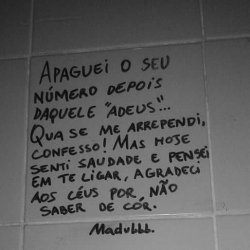 APAGUEI O SEU
NÚMERO DEPOIS
DAQUELE "ADEUS"...
QUASE ME ARREPENDI,
CONFESSO! MAS HOJE
SENTI SAUDADE E PENSEI
EM TE LIGAR, AGRADECI
AOS CÉUS POR, NÃO
SABER DE CÓR.
Madubbb.